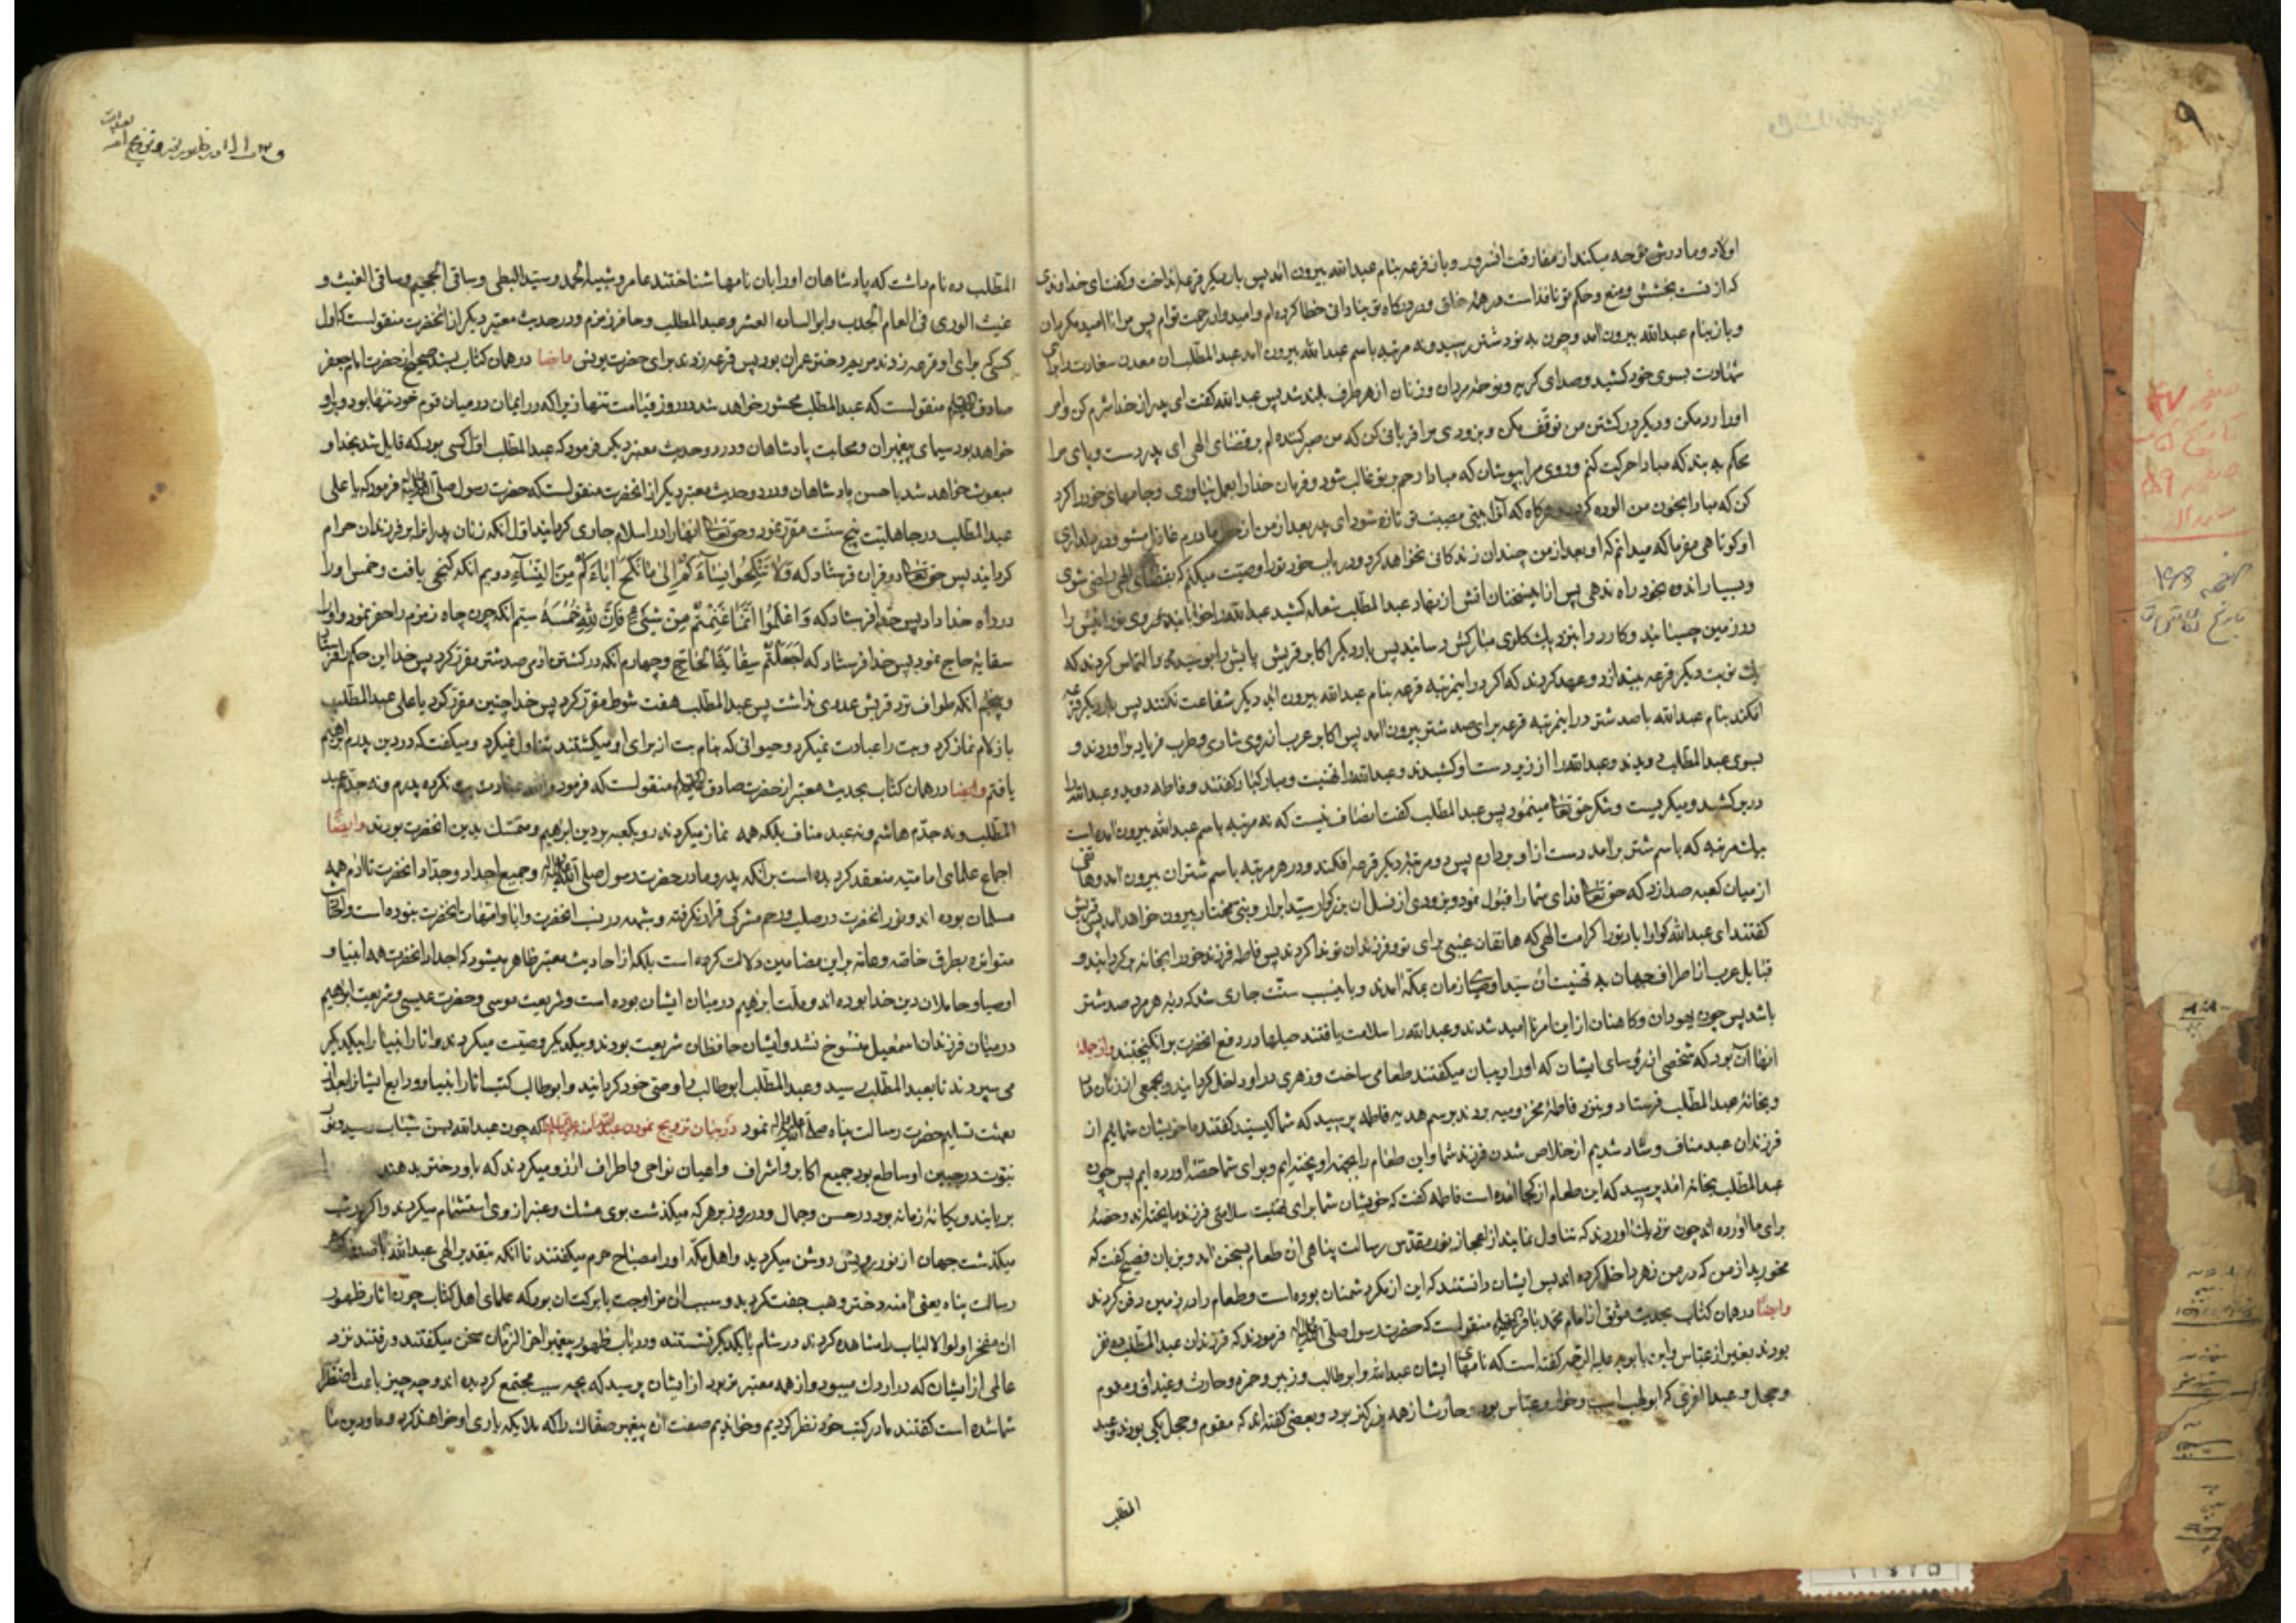 اولاد و مادرش نوحه میکند از مفارقت او و باز قرعه بنام عبدالله بیرون آمد پس بار دیگر قرعه انداخت و گفت ای خداوندی
و باز بنام عبدالله بیرون آمد و چون به نود شتر رسید و نه مرتبه باسم عبدالله بیرون آمد عبدالمطلب ان معدن سعادت را برای
شهادت بسوی خود کشید و صدای گریه و نوحه مردان و زنان از هر طرف بلند شد پس عبدالله گفت ای پدر از خدا شرم کن و امر
اورا رد مکن و دیگر در کشتن من توقف مکن و بزودی مرا قربانی کن که من صبر کننده ام بر قضای الهی ای پدر دست و پای مرا
محکم به بند که مبادا حرکت کنم و روی مرا بپوشان که مبادا رحم بر تو غالب شود و فرمان خدا را بعمل نیاوری و جامهای خود را گرد
کن که مبادا بخون من الوده گردد و هرگاه که آنرا بینی مصیبتت تازه شود ای پدر بعد از من از مادرم غافل مشو و در دلداری
او کوتاهی مفرما که میدانم که او بعد از من چندان زندگانی نخواهد کرد و در باب خود تو را وصیت میکنم که بقضای الهی راضی شوی
و بسیار اندوه بخود راه ندهی پس از این سخنان اتش از نهاد عبدالمطلب شعله کشید عبدالله را خوابانید و روی نورانیش را
در زمین چسبانید و کارد را بنزدیک گلوی مبارکش رسانید پس بار دیگر اکابر قریش پایش را بوسیدند و التماس کردند که
یک نوبت دیگر قرعه بیندازد و عهد کردند که اگر در اینمرتبه قرعه بنام عبدالله بیرون آید دیگر شفاعت نکنند پس بار دیگر قرعه
افکند بنام عبدالله با صد شتر در اینمرتبه قرعه برای صد شتر بیرون آمد پس اکابر عرب از روی شادی و طرب فریاد براوردند و
بسوی عبدالمطلب دویدند و عبدالله را از زیر دست او کشیدند و عبدالله را تهنیت و مبارکباد گفتند و فاطمه دوید و عبدالله را
در بر کشید و میگریست و شکر حق تعالی مینمود پس عبدالمطلب گفت انصاف نیست که نه مرتبه باسم عبدالله بیرون آمده است
یک مرتبه که باسم شتر برامد دست از او بردارم پس دو مرتبه دیگر قرعه افکند و در هر مرتبه باسم شتران بیرون آمد و هاتفی
از میان کعبه صدا زد که حق تعالی فدای شما را قبول نمود و بزودی از نسل ان بزرگوار سید ابرار و نبی مختار بیرون خواهد آمد پس قریش
گفتند ای عبدالله گوارا باد تورا کرامت الهی که هاتفان غیبی برای تو و فرزندان تو ندا کردند پس فاطمه فرزند خود را بخانه برگردانید و
قبایل عرب از اطراف جهان به تهنیت ان سید اوصیای زمان بمکه آمدند و باینسبب سنت جاری شد که دیه هر مرد صد شتر
باشد پس چون یهودان و کاهنان از این امر نا امید شدند و عبدالله را سلامت یافتند حیلها در دفع انحضرت برانگیختند و از جمله
انها آن بود که شخصی از رؤسای ایشان که او را ربیان میگفتند طعامی ساخت و زهری در او داخل گردانید و بجمعی از زنان داد
و بخانه عبدالمطلب فرستاد و بنزد فاطمه مخزومیه بردند برسم هدیه فاطمه پرسید که شما کیستید گفتند ما خویشان شمائیم از
فرزندان عبد مناف و شاد شدیم از خلاص شدن فرزند شما و این طعام را بجهة او پخته ایم و برای شما حصّه آورده ایم پس چون
عبدالمطلب بخانه آمد پرسید که این طعام از کجا آمده است فاطمه گفت که خویشان شما برای تهنیت سلامتی فرزند ما پخته اند و حصّه
برای ما آورده اند چون نزدیک آوردند که تناول نمایند از اعجاز نور مقدس رسالت پناهی ان طعام بسخن آمد و بزبان فصیح گفت که
مخورید از من که در من زهر داخل کرده اند پس ایشان دانستند که این از مکر دشمنان بوده است و طعام را در زمین دفن کردند
وایضا در همان کتاب بحدیث موثق از امام محمد باقر علیه السلام منقولست که حضرت رسول صلی الله علیه و اله فرمودند که فرزندان عبدالمطلب ده نفر
بودند بغیر از عباس و ابن بابویه علیه الرحمه گفته است که نامهای ایشان عبدالله و ابوطالب و زبیر و حمزه و حارث و غیداق و مقوم
و حجل و عبدالعزی که ابولهب است و ضرار و عباس بود و حارث از همه بزرگتر بود و بعضی گفته اند که مقوم و حجل یکی بودند و عبد
المطلب
المطلب ده نام داشت که پادشاهان او را بان نامها شناختند عامر و شیبة الحمد و سید البطحا و ساقی الحجیج و ساقی الغیث و
غیث الوری فی العام الجدب و ابو الساده العشر و عبدالمطلب و حافر زمزم و در حدیث معتبر دیگر از انحضرت منقولست که اول
کسی که برای او قرعه زدند مریم دختر عمران بود پس قرعه زدند برای حضرت یونس وایضا در همان کتاب بسند صحیح از حضرت امام جعفر
صادق علیه السلام منقولست که عبدالمطلب محشور خواهد شد در روز قیامت تنها زیرا که در ایمان در میان قوم خود تنها بود و با او
خواهد بود سیمای پیغمبران و مهابت پادشاهان و در دو حدیث معتبر دیگر فرمود که عبدالمطلب اول کسی بود که قایل شد ببدا و
مبعوث خواهد شد با حسن پادشاهان و در دو حدیث معتبر دیگر از انحضرت منقولست که حضرت رسول صلی الله علیه و اله فرمود که یا علی
عبدالمطلب در جاهلیت پنج سنت مقرر نمود و حق تعالی انها را در اسلام جاری گردانید اول آنکه زنان پدرانرا بر فرزندان حرام
گردانید پس حق تعالی در قران فرستاد که وَلَا تَنْكِحُوا مَا نَكَحَ آبَاؤُكُمْ مِنَ النِّسَآءِ دویم انکه گنجی یافت و خمس اورا
در راه خدا داد پس خدا فرستاد که وَاعْلَمُوا أَنَّمَا غَنِمْتُمْ مِنْ شَيْءٍ فَأَنَّ لِلَّهِ خُمُسَهُ سیم انکه چون چاه زمزم را حفر نمود و اورا
سقایه حاج نمود پس خدا فرستاد که اَجَعَلْتُمْ سِقَايَةَ الْحَاجِّ و چهارم انکه در کشتن ادمی صد شتر مقرر کرد پس خدا این حکم را فرستاد
و پنجم آنکه طواف نزد قریش عددی نداشت پس عبدالمطلب هفت شوط مقرر کرد پس خدا چنین مقرر کرد یا علی عبدالمطلب
بازلام نماز کرد و بت را عبادت نمیکرد و حیوانی که بنام بت از برای او میکشتند تناول نمیکرد و میگفت که در دین پدرم ابراهیم
یافتم وایضا در همان کتاب بحدیث معتبر از حضرت صادق علیه السلام منقولست که فرمود والله عبادت بت نکرده پدرم و نه جدّم عبد
المطلب و نه جدّم هاشم و نه عبد مناف بلکه همه نماز میکردند رو بکعبه بر دین ابراهیم و متمسک بدین انحضرت بودند وایضًا
اجماع علمای امامیه منعقد گردیده است برانکه پدر و مادر حضرت رسول صلی الله علیه و اله و جمیع اجداد و جدات انحضرت تا آدم همه
مسلمان بوده اند و نور انحضرت در صلب و رحم مشرکی قرار نگرفته و شبهه در نسب انحضرت و ابا و امهات انحضرت نبوده است و احادیث
متواتره بطرق خاصه و عامه بر این مضامین دلالت کرده است بلکه از احادیث معتبره ظاهر میشود که اجداد انحضرت همه انبیا و
اوصیا و حاملان دین خدا بوده اند و ملت ابراهیم در میان ایشان بوده است و شریعت موسی و حضرت عیسی و شریعت ابراهیم
در میان فرزندان اسمعیل منسوخ نشد و ایشان حافظان شریعت بودند و بیکدیگر وصیت میکردند و اثار انبیا را بیکدیگر
می سپردند تا بعبدالمطلب رسید و عبدالمطلب ابوطالب را وصی خود گردانید و ابوطالب کتب و اثار انبیا و ودایع ایشانرا بعد از
بعثت تسلیم حضرت رسالت پناه صلی الله علیه و اله نمود در بیان تزویج نمودن عبدالله امنه که چون عبدالله بسن شباب رسید و نور
نبوت در جبین او ساطع بود جمیع اکابر و اشراف و اعیان نواحی و اطراف ارزو میکردند که باو دختر بدهند
بربایند و یگانه زمانه بود در حسن و جمال و در روز بر هر که میگذشت بوی مشک و عنبر از وی استشمام میکردند و اگر در شب
میگذشت جهان از نور رویش روشن میگردید و اهل مکه او را مصباح حرم میگفتند تا انکه بتقدیر الهی عبدالله با صدف گوهر
رسالت پناه یعنی آمنه دختر وهب جفت گردید و سبب ان مزاوجت بابرکت ان بود که علمای اهل کتاب چون اثار ظهور
ان مفخر اولوا الالباب را مشاهده کردند در شام با یکدیگر نشستند و در باب ظهور پیغمبر اخر الزمان سخن میگفتند و رفتند نزد
عالمی از ایشان که در اردن میبود و از همه معتبرتر بود از ایشان پرسید که بچه سبب مجتمع گردیده اند و چه چیز باعث اضطراب
شما شده است گفتند ما در کتب خود نظر کردیم و خواندیم صفت ان پیغمبر سفاک را که ملایکه یاری او خواهند کرد